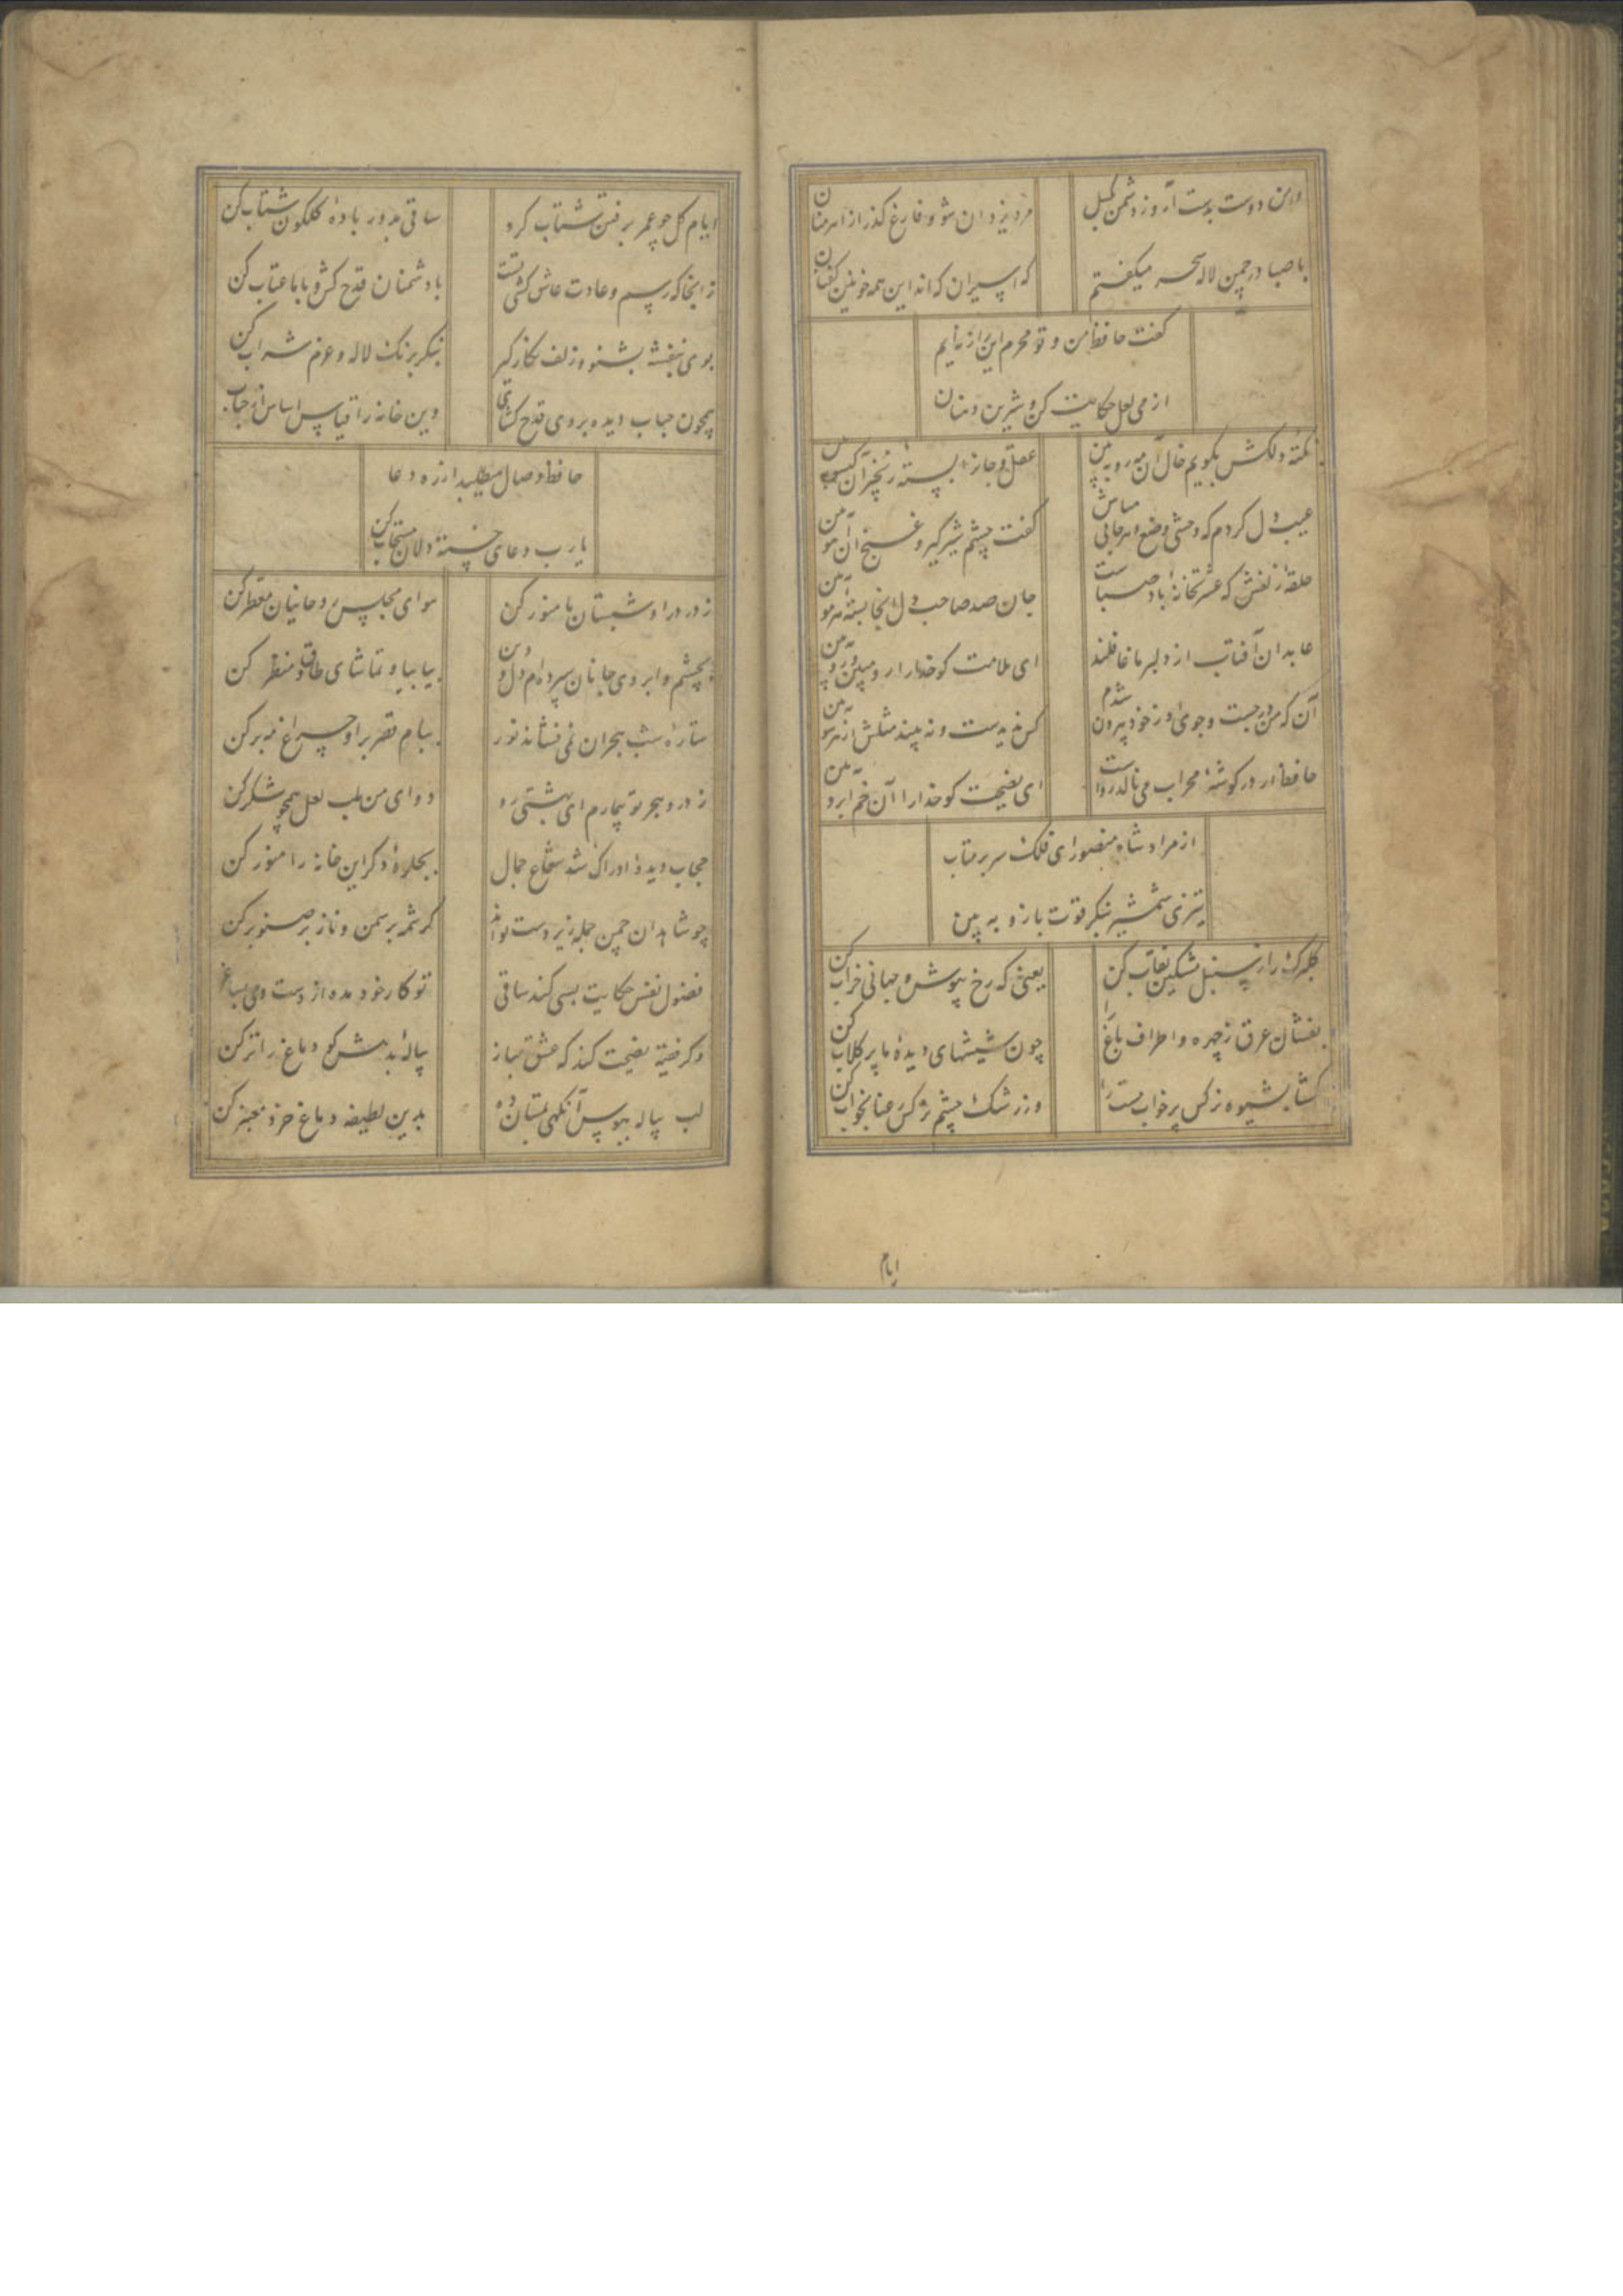 دامن دوست بدست آر و ز دشمن بگسل
مرد یزدان شو و فارغ گذر از اهرمنان
با صبا در چمن لاله سحر میگفتم
که اسیران که‌اند این همه خونین کفنان
گفت حافظ من و تو محرم این راز نه‌ایم
از می لعل حکایت کن و شیرین دهنان
نکته دلکش بگویم خال آن مه رو به بین
عقل و جان را بسته زنجیر آن گیسو به بین
عیب دل کردم که وحشی وضع و هرجایی مباش
گفت چشم شیرگیر و غنج آن آهو به بین
حلقه زلفش که عشرتخانه باد صباست
جان صد صاحب دل اینجا بسته هر مو به بین
عابدان آفتاب از دلبر ما غافلند
ای ملامت گو خدا را رو مبین و رو به بین
آن که من در جست و جوی او ز خود بیرون شدم
کس ندیدست و نه بیند مثلش از هر سو به بین
حافظ ار در گوشه محراب می نالد رواست
ای نصیحت گو خدا را آن خم ابرو به بین
از مراد شاه منصور ای فلک سر بر متاب
تیزی شمشیر بنگر قوت بازو به بین
گلبرگ را ز سنبل مشکین نقاب کن
یعنی که رخ بپوش و جهانی خراب کن
بفشان عرق ز چهره و اطراف باغ را
چون شیشهای دیده ما پر گلاب کن
بگشا بشیوه نرگس پر خواب مست را
وز رشک چشم نرگس رعنا بخواب کن
ایام
ایام گل چو عمر برفتن شتاب کرد
ساقی بدور باده گلگون شتاب کن
زانجا که رسم و عادت عاشق کشی تست
با دشمنان قدح کش و با ما عتاب کن
بوی بنفشه بشنو و زلف نگار گیر
بنگر برنگ لاله و عزم شراب کن
همچون حباب دیده بروی قدح گشای
وین خانه را قیاس اساس از حباب
حافظ وصال میطلبد از ره دعا
یا رب دعای خسته دلان مستجاب کن
ز در درا و شبستان ما منور کن
هوای مجلس روحانیان معطر کن
بچشم و ابروی جانان سپرده‌ام دل و دین
بیا بیا و تماشای طاق و منظر کن
ستاره شب هجران نمی فشاند نور
ببام قصر برا و چراغ مه بر کن
ز درد هجر تو بیمارم ای بهشتی رو
دوای من بلب لعل همچو شکر کن
حجاب دیده ادراک شد شعاع جمال
بجلوه دگر این خانه را منور کن
چو شاهدان چمن جمله زیردست تواند
کرشمه بر سمن و ناز بر صنوبر کن
فضول نفس حکایت بسی کند ساقی
تو کار خود مده از دست و می بساغر
وگر فقیه نصیحت کند که عشق مباز
پیاله بدهش گو دماغ را تر کن
لب پیاله ببوس آنگهی بمستان ده
بدین لطیفه دماغ خرد معنبر کن